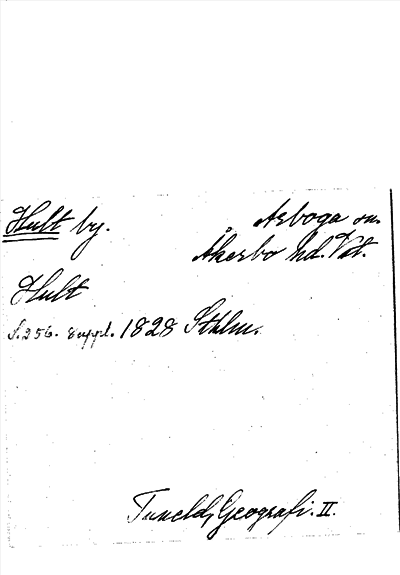 Hult by.
Arboga sn.
Åkerbo hd. Vstm.
Hult
S. 256. suppl. 1828 Sthlm.
Tuneld, Geografi. II.